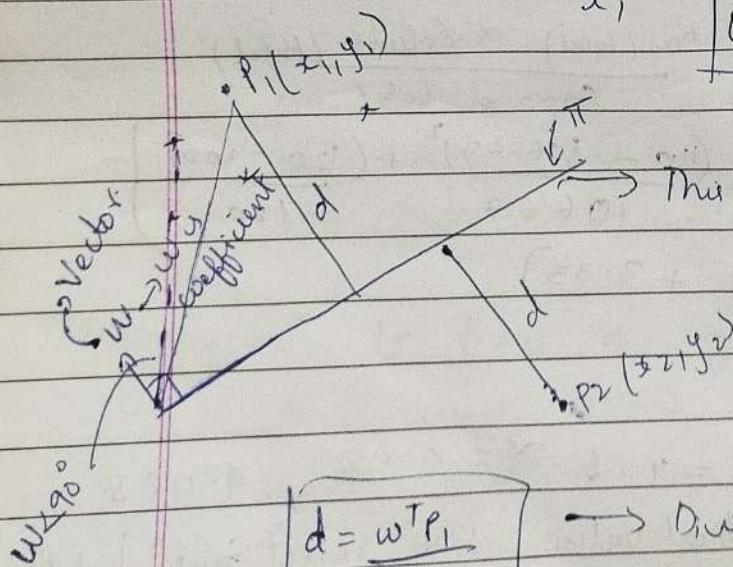 P1(x1, y1)
π
→ This
d
Vector
W → W's
coefficient
d
P2 (x2, y2)
W∠90°
d = wᵀP1